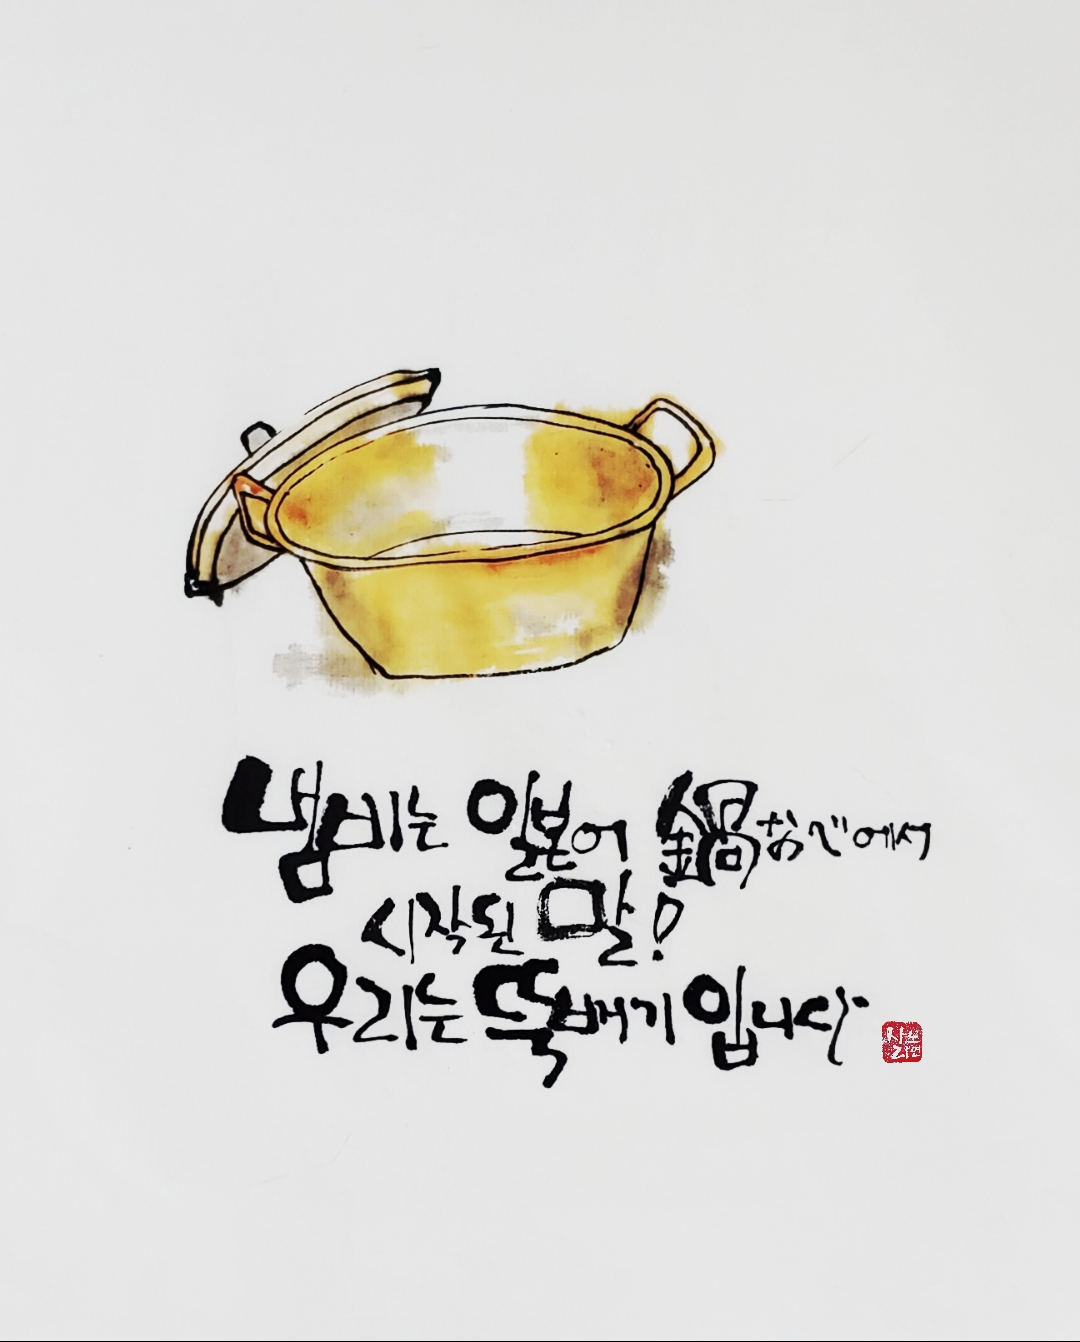 냄비는 일본어 鍋おべ에서
시작된 말!
우리는 뚝배기 입니다